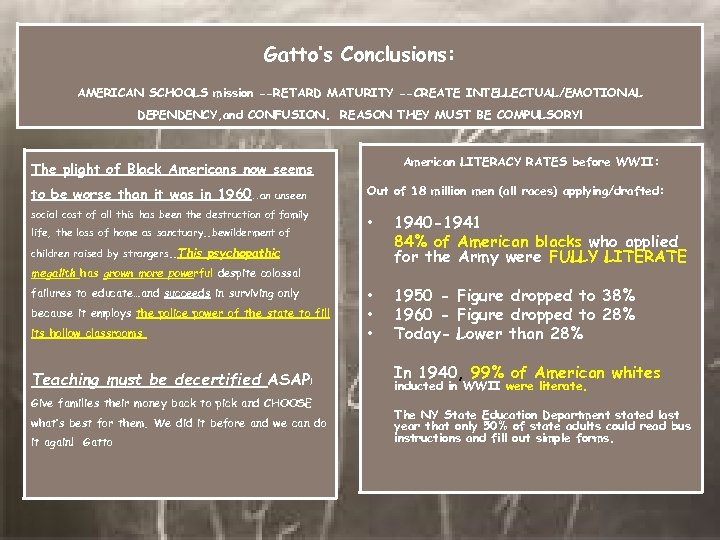 Gatto's Conclusions:
AMERICAN SCHOOLS mission --RETARD MATURITY --CREATE INTELLECTUAL/EMOTIONAL
DEPENDENCY, and CONFUSION. REASON THEY MUST BE COMPULSORY!
The plight of Black Americans now seems
to be worse than it was in 1960…an unseen
social cost of all this has been the destruction of family
life, the loss of home as sanctuary..bewilderment of
children raised by strangers..This psychopathic
megalith has grown more powerful despite colossal
failures to educate…and succeeds in surviving only
because it employs the police power of the state to fill
its hollow classrooms
Teaching must be decertified ASAP!
Give families their money back to pick and CHOOSE
what's best for them. We did it before and we can do
it again! Gatto
American LITERACY RATES before WWII:
Out of 18 million men (all races) applying/drafted:
• 1940-1941
84% of American blacks who applied
for the Army were FULLY LITERATE
• 1950 - Figure dropped to 38%
• 1960 - Figure dropped to 28%
• Today- Lower than 28%
In 1940, 99% of American whites
inducted in WWII were literate.
The NY State Education Department stated last
year that only 30% of state adults could read bus
instructions and fill out simple forms.